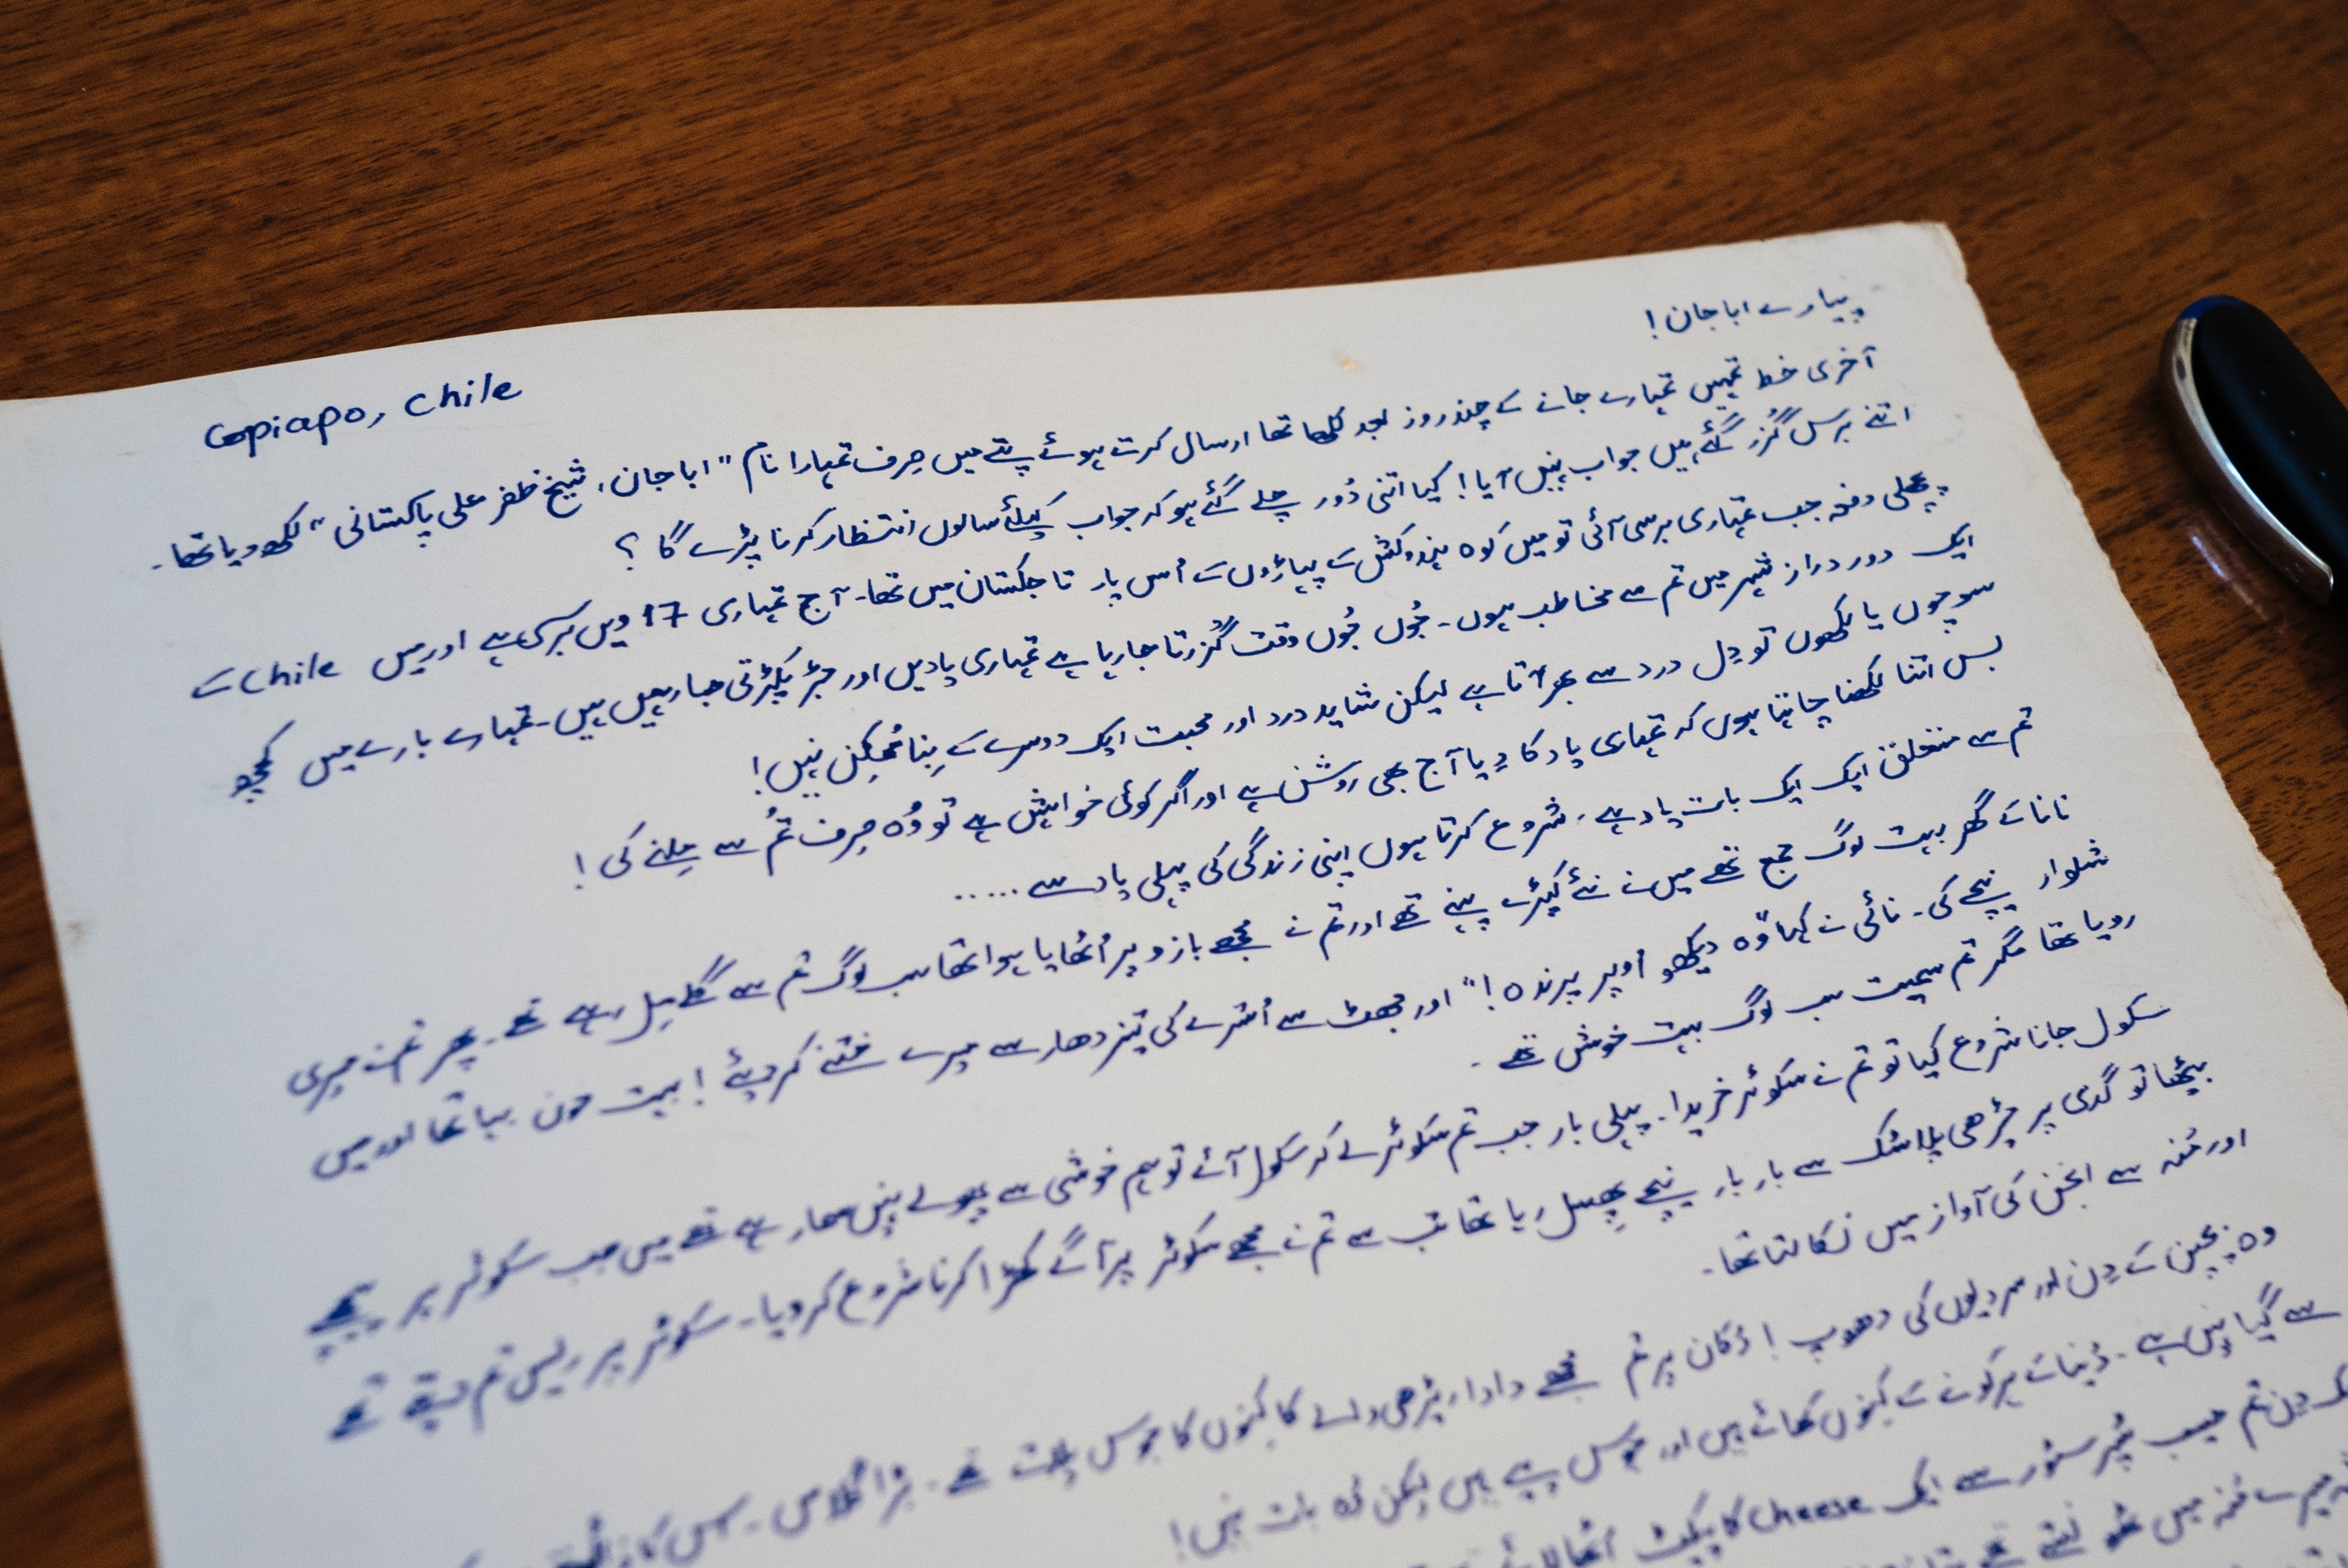 Copiapo, Chile
پیارے ابا جان!
آخری خط تمہیں تمہارے جانے کے چند روز بعد لکھا تھا ارسال کرتے ہوئے پتے میں صِرف تمہارا نام "ابا جان، شیخ ظفر علی پاکستانی" لکھ دیا تھا۔
اتنے برس گُزر گئے ہیں جواب نہیں آیا! کیا اتنی دُور چلے گئے ہو کہ جواب کیلئے سالوں انتظار کرنا پڑے گا؟
پچھلی دفعہ جب تمہاری برسی آئی تو میں کوہ ہندوکش کے پہاڑوں کے اُس پار تاجکستان میں تھا۔ آج تمہاری 17 ویں برسی ہے اور میں Chile کے
ایک دور دراز شہر میں تم سے مخاطب ہوں۔ جُوں جُوں وقت گُزرتا جا رہا ہے تمہاری یادیں اور جڑ پکڑتی جا رہیں ہیں۔ تمہارے بارے میں کچھ
سوچوں یا لکھوں تو دِل درد سے بھر آتا ہے لیکن شاید درد اور محبت ایک دوسرے کے بِنا مُمکِن نہیں!
بس اتنا لکھنا چاہتا ہوں کہ تمہاری یاد کا دِیا آج بھی روشن ہے اور اگر کوئی خواہش ہے تو وُہ صِرف تُم سے مِلنے کی!
تم سے متعلق ایک ایک بات یاد ہے، شروع کرتا ہوں اپنی زندگی کی پہلی یاد سے.....
نانا کے گھر بہت لوگ جمع تھے میں نے نئے کپڑے پہنے تھے اور تم نے مجھے بازو پر اُٹھایا ہوا تھا سب لوگ تم سے گلے مِل رہے تھے۔ پھر تم نے میری
شلوار نیچے کی۔ نائی نے کہا "وُہ دیکھو اُوپر پرندہ!" اور جھٹ سے اُسترے کی تیز دھار سے میرے ختنے کر دیئے! بہت خون بہا تھا اور میں
رویا تھا مگر تم سمیت سب لوگ بہت خوش تھے۔
سکول جانا شروع کیا تو تم نے سکوٹر خریدا۔ پہلی بار جب تم سکوٹر لے کر سکول آئے تو ہم خوشی سے پھولے نہیں سما رہے تھے میں جب سکوٹر پر پیچھے
بیٹھتا تو گدی پر چڑھی پلاسٹک سے بار بار نیچے پھِسل رہا تھا تب سے تم نے مجھے سکوٹر پر آگے کھڑا کرنا شروع کر دیا۔ سکوٹر پر ریس تم دیتے تھے
اور مُنہ سے انجن کی آواز میں نکالتا تھا۔
وہ بچپن کے دِن اور سردیوں کی دھوپ! دُکان پر تم مجھے دادا ریڑھی والے کا کِنوں کا جوس پلاتے تھے۔ بڑا گلاس۔
سے گیا نہیں ہے۔ دُنیا کے ہر کونے کے کِنوں کھائے ہیں اور جوس پیے ہیں لیکن وُہ بات نہیں!
دِن تم سٹور سے ایک cheese کا پیکٹ